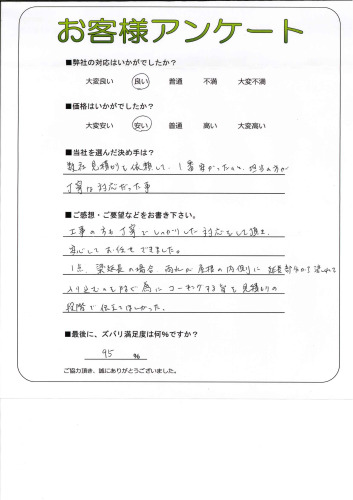 お客様アンケート
■弊社の対応はいかがでしたか？
大変良い 良い 普通 不満 大変不満
■価格はいかがでしたか？
大変安い 安い 普通 高い 大変高い
■当社を選んだ決め手は？
数社見積りを依頼して、1番安かったのと、担当の方が
丁寧な対応だった事
■ご感想・ご要望などをお書き下さい。
工事の方も丁寧でしっかりした対応をして頂き、
安心してお任せできました。
1点、梁延長の場合 雨水が屋根の内側に延長部分から流れて
入り込むのを防ぐ為にコーキングする旨を見積りの
段階で伝えてほしかった。
■最後に、ズバリ満足度は何％ですか？
95 ％
ご協力頂き、誠にありがとうございました。